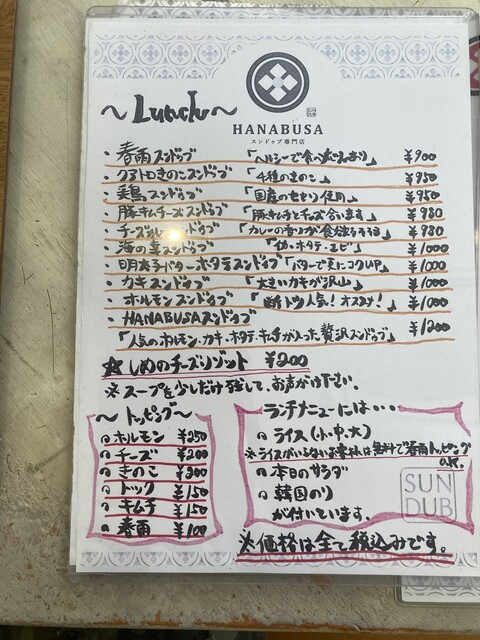 ~Lunch~
HANABUSA
スンドゥブ専門店
・春雨スンドゥブ 「ヘルシーで食べごたえあり」 ¥900
・クアトロきのこスンドゥブ 「4種のきのこ」 ¥950
・鶏スンドゥブ 「国産のせせり使用」 ¥950
・豚キムチーズスンドゥブ 「豚キムチとチーズ合います」 ¥980
・チーズカレースンドゥブ 「カレーの香りが食欲をそそる」 ¥980
・海の幸スンドゥブ 「イカ・ホタテ・エビ」 ¥1000
・明太子バターホタテスンドゥブ 「バターで更にコクUP」 ¥1000
・カキスンドゥブ 「大きいカキが沢山」 ¥1000
・ホルモンスンドゥブ 「断トツ人気!オススメ!」 ¥1000
・HANABUSAスンドゥブ
「人気のホルモン、カキ、ホタテ、キムチが入った贅沢スンドゥブ」 ¥1200
☆しめのチーズリゾット ¥200
※スープを少しだけ残して、お声がけ下さい。
~トッピング~
ホルモン ¥250
チーズ ¥200
きのこ ¥200
トック ¥150
キムチ ¥150
春雨 ¥100
ランチメニューには・・・
ライス(小・中・大)
※ライスがいらないお客様は無料で春雨トッピング
O.K.
本日のサラダ
韓国のり
が付いています。
SUN
DUB
※価格は全て税込みです。